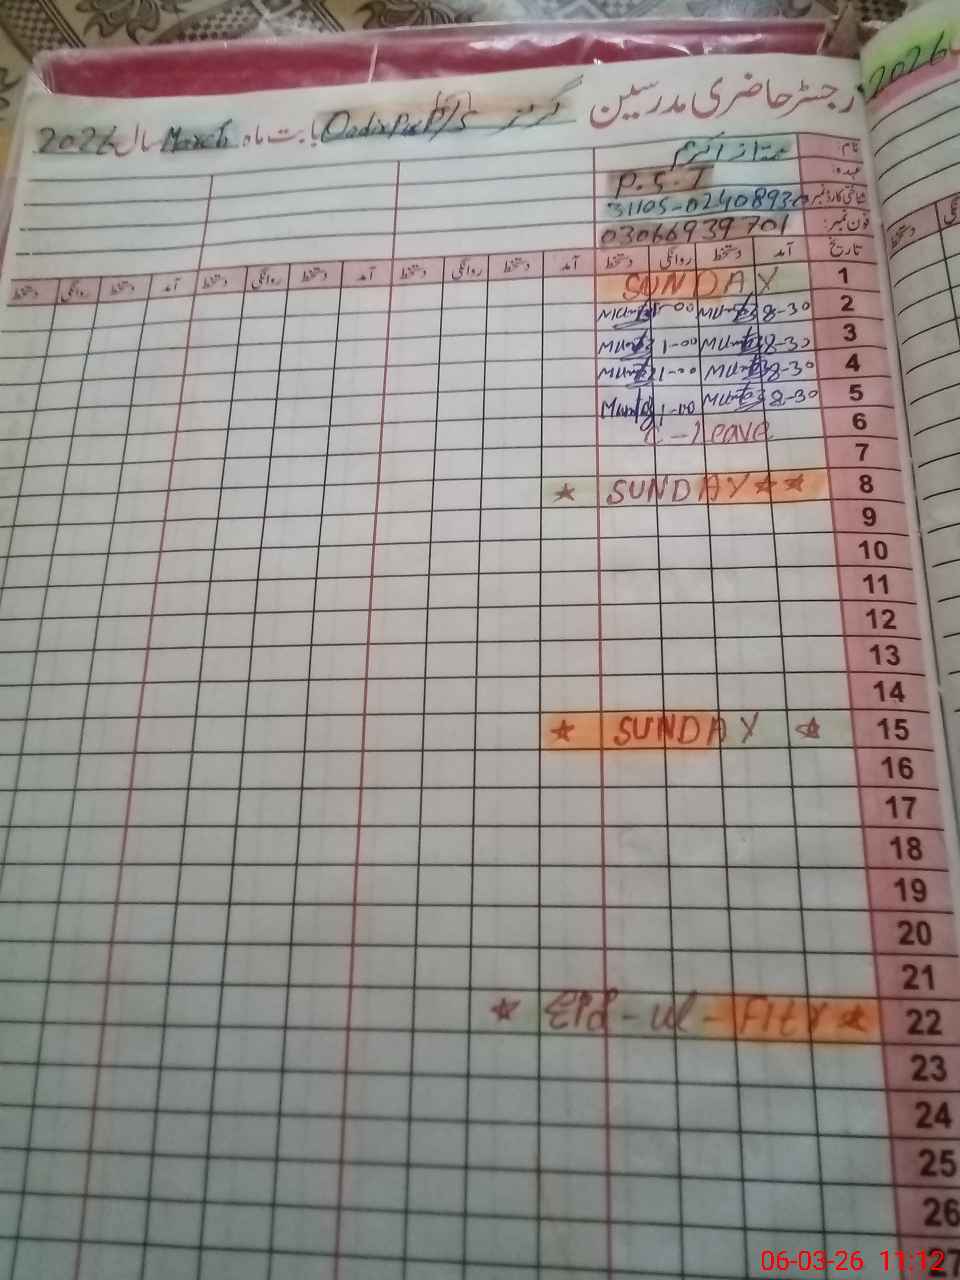 رجسٹر حاضری مدرسین گرلز P/S Qadir Pur بابت ماہ March سال 2026
2026
نام ممتاز اکرم
عہدہ P.S.T
شناختی کارڈ نمبر 31105-0240893
فون نمبر: 03066939701
تاریخ آمد دستخط روانگی دستخط آمد دستخط روانگی دستخط آمد دستخط روانگی دستخط
دستخط
1 SUNDAY
2 8-30 Mumtaz 1-00 Mumtaz
3 8-30 Mumtaz 1-00 Mumtaz
4 8-30 Mumtaz 1-00 Mumtaz
5 8-30 Mumtaz 1-00 Mumtaz
6 C-Leave
7
8 SUNDAY
9
10
11
12
13
14
15 SUNDAY
16
17
18
19
20
21
22 Eid-ul-Fitr
23
24
25
26
27
06-03-26 11:12